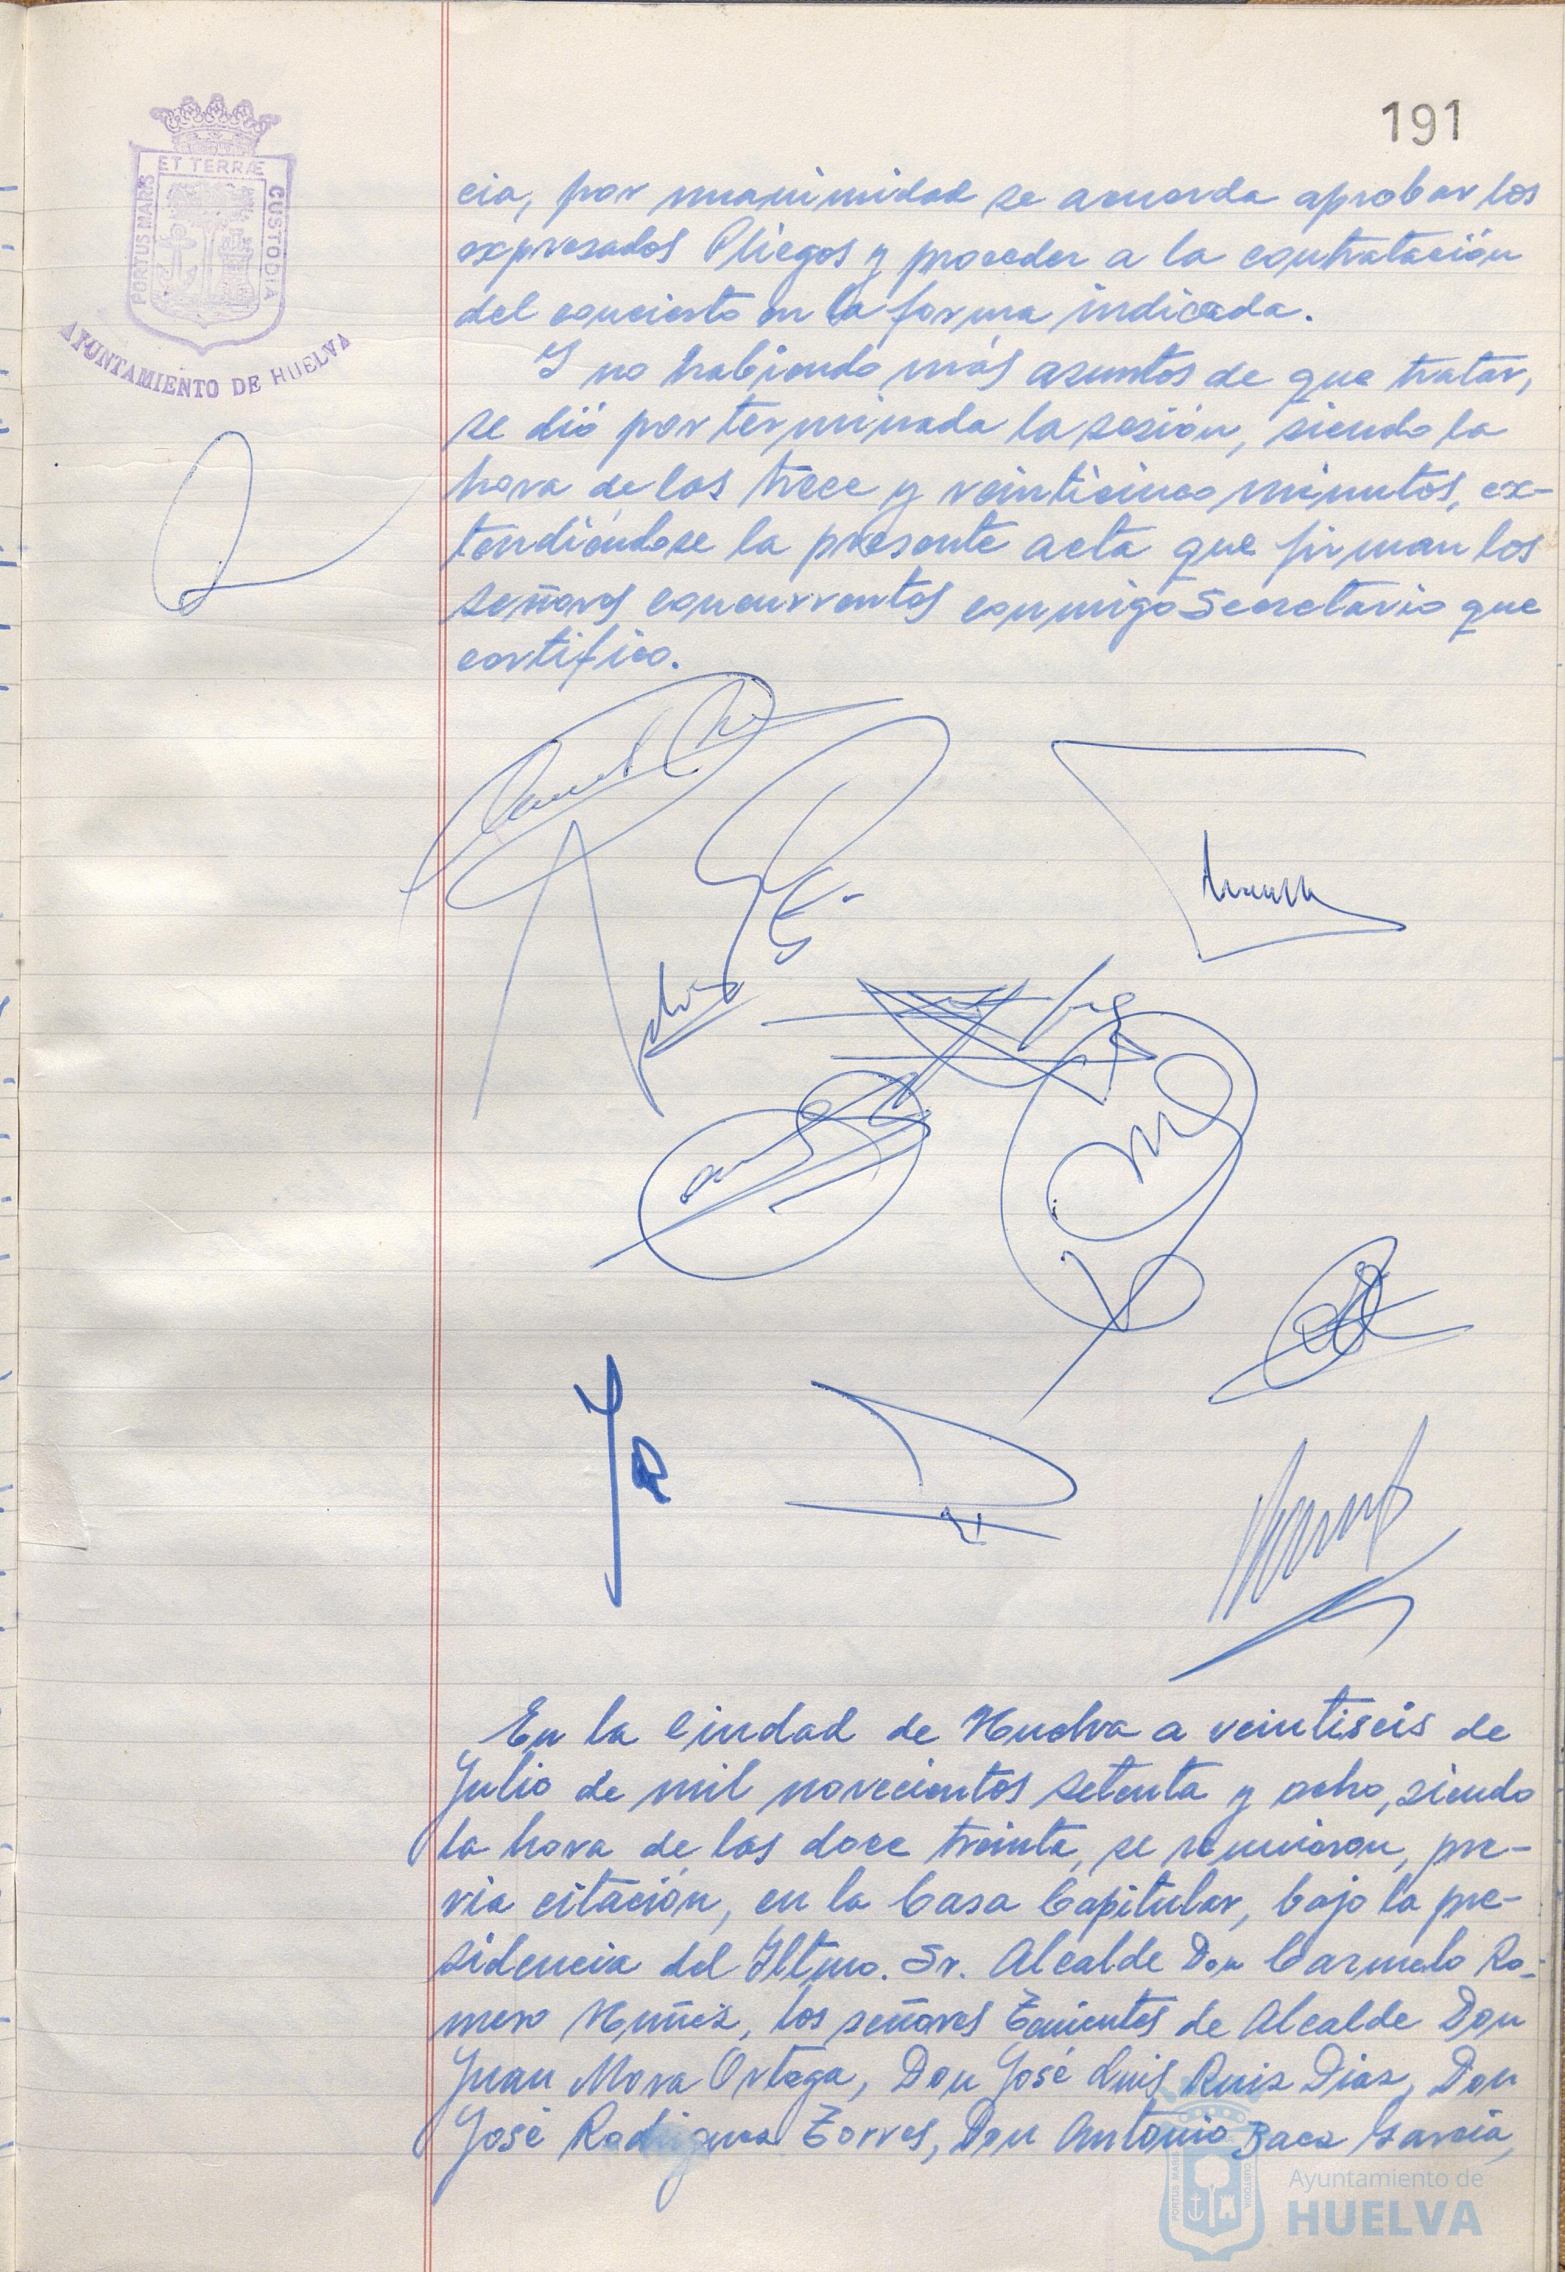 191
PORTUS MARIS ET TERRÆ CUSTODIA
AYUNTAMIENTO DE HUELVA
cia, por unanimidad se acuerda aprobar los
expresados Pliegos y proceder a la contratación
del concierto en la forma indicada.
Y no habiendo más asuntos de que tratar,
se dió por terminada la sesión, siendo la
hora de las trece y veinticinco minutos, ex-
tendiéndose la presente acta que firman los
señores concurrentes conmigo Secretario que
certifico.
En la Ciudad de Huelva a veintiseis de
Julio de mil novecientos setenta y ocho, siendo
la hora de las doce treinta, se reunieron, pre-
via citación, en la Casa Capitular, bajo la pre-
sidencia del Iltmo. Sr. Alcalde Don Carmelo Ro-
mero Núñez, los señores Tenientes de Alcalde Don
Juan Mora Ortega, Don José Luis Ruiz Diaz, Don
José Rodriguez Torres, Don Antonio Baez Garcia,
Ayuntamiento de
HUELVA